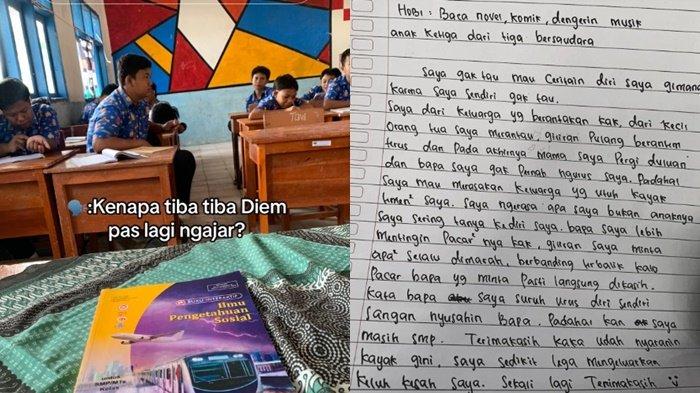 🗣️:Kenapa tiba tiba Diem
pas lagi ngajar?
BUKU INTERAKTIF
Ilmu
Pengetahuan
Sosial
SMP/MTs
HOBI : Baca novel, komik, dengerin musik
anak Ketiga dari tiga bersaudara
Saya gak tau mau Ceritain diri saya gimana
Karna Saya Sendiri gak tau.
Saya dari Keluarga yg berantakan kak, dari kecil
Orang tua saya merantau giliran Pulang berantem
terus dan Pada akhirnya mama saya Pergi duluan
dan bapa saya gak Pernah ngurus saya. Padahal
Saya mau merasakan Keluarga yg utuh Kayak
temen² saya. Saya ngerasa apa saya bukan anaknya
Saya sering tanya Ke diri saya. bapa saya lebih
Mentingin Pacar nya kak, giliran saya minta
apa² selalu dimarah, berbanding terbalik kalo
Pacar bapa yg minta Pasti langsung dikasih.
Kata bapa saya suruh urus diri sendiri
Jangan nyusahin Bapa. Padahal kan saya
masih smp. Terimakasih kaka udah nyaranin
Kayak gini, saya sedikit lega mengeluarkan
Keluh kesah saya. Sekali lagi Terimakasih